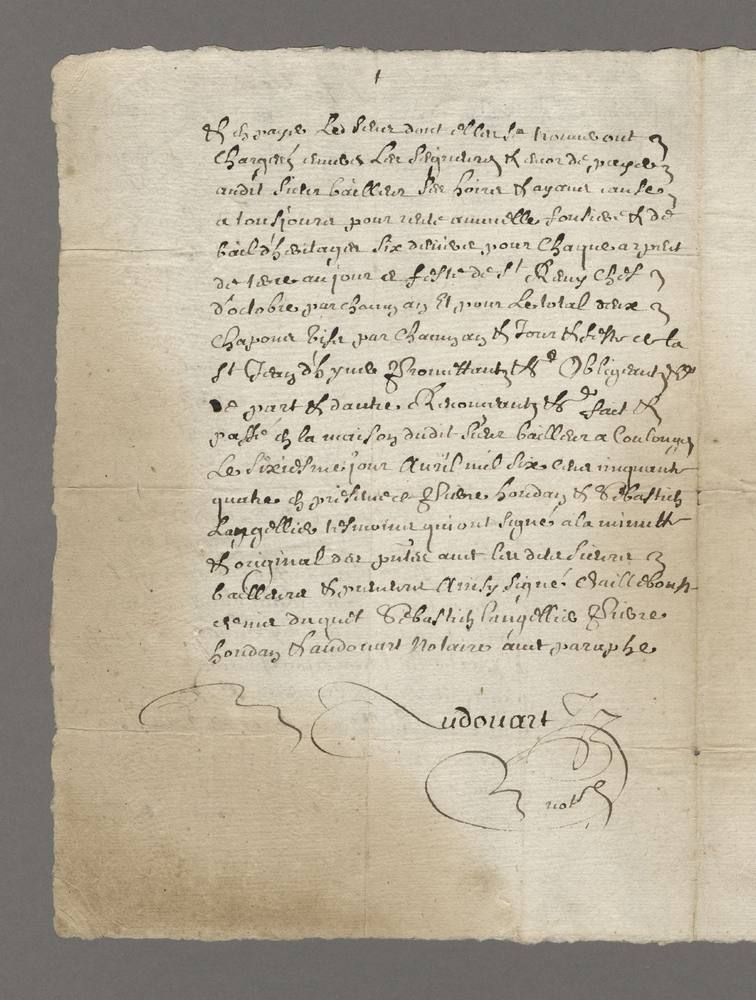 & en payer Led sieur dont elles se trouveront
chargéz envers Les seigneurs & encor de payer
audit sieur bailleur ses hoirs & ayans cause
a tousjours pour rente annuelle fonsiere & de
bail d'heritages six deniers pour chaque arpent
de terre au jour et feste de St Remy chef
d'octobre par chacun an Et pour Le total deux
chapons vifs par chacun an & Jour & feste de la
St Jean d'hyver Promettants &c Obligeants &c
de part & dautre Renonceants &c faict &
passé en la maison dudit sieur bailleur a Coulonges
Le sixiesme jour Avril mil six cens cinquante
quatre en presence Pierre houdan & Sebastien
Langellier tesmoins qui ont signé a la minutte
& original des pntes avec lesdits sieurs
bailleurs & preneurs Ainsy signé Dailleboust
duquet Sebastien langellier Pierre
houdan & audouart Notaire avec paraphe
Audouart
notre